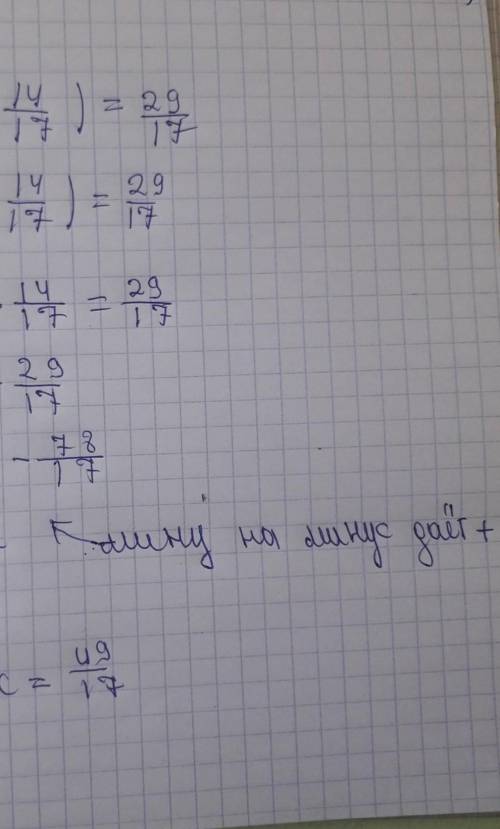 14/17 ) = 29/17
14/17 ) = 29/17
14/17 = 29/17
29/17
- 78/17
минус на минус даёт +
с = 49/17